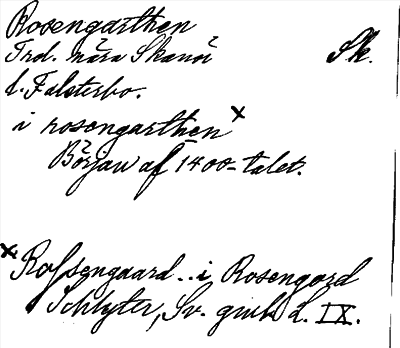 Rosengarthen
Trol. nära Skanör Sk.
l. Falsterbo.
i rosengarthen x
Början af 1400-talet.
x Rossengaard .. i Rosengord
Schlyter, Sv. L. IX.